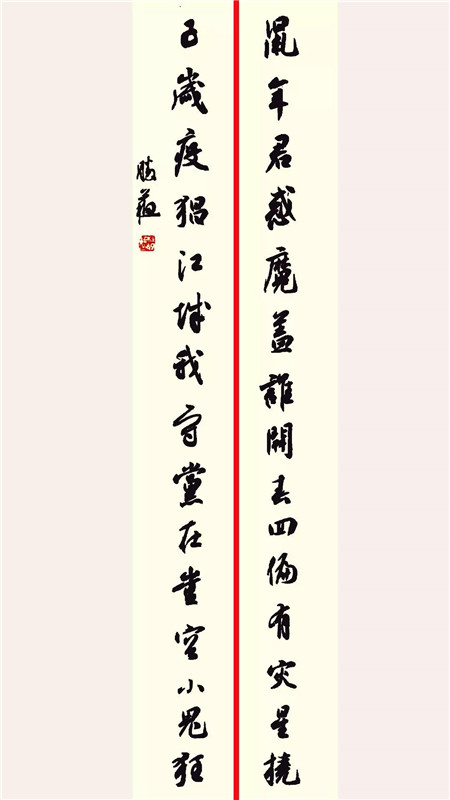 鼠年君惑魔蓋誰開去四偏有灾星撓
子歲疫猖江城我守黨在豈容小鬼狂